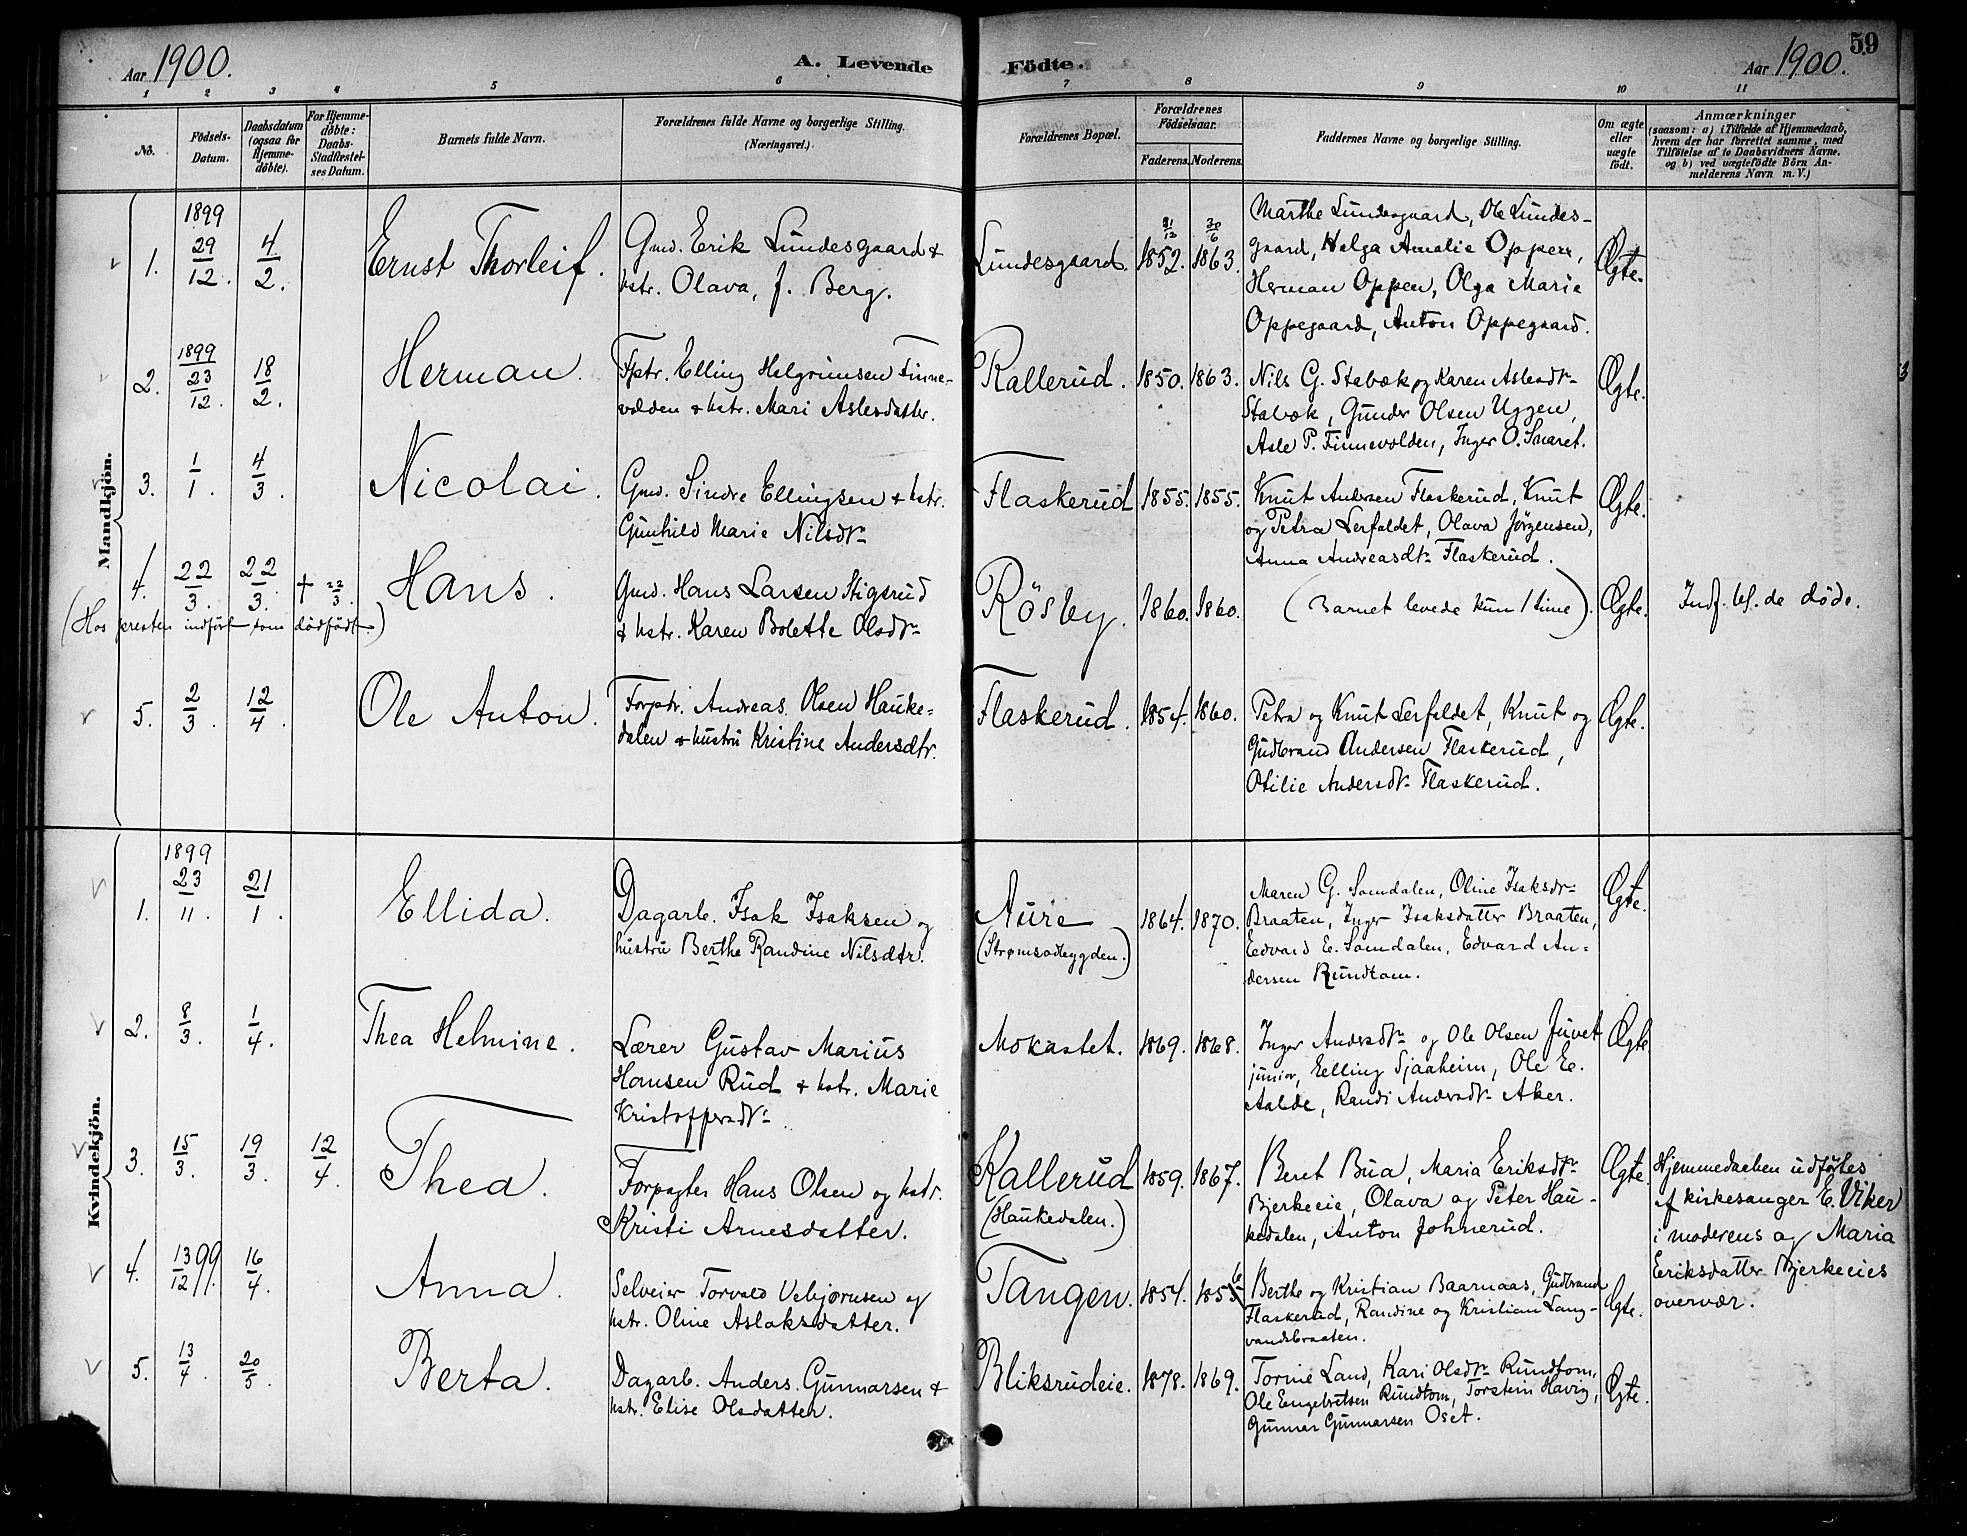 59
Aar 1900.
A. Levende
Födte.
Aar 1900.
1 2 3 4 5 6 7 8 9 10 11
No.
Födsels-
Datum.
Daabsdatum
(ogsaa for
Hjemme-
döbte).
For Hjemme-
döbte:
Daabs-
Stadfæstel-
ses Datum.
Barnets fulde Navn.
Forældrenes fulde Navne og borgerlige Stilling.
(Næringsvei.)
Forældrenes Bopæl.
Forældrenes
Födselsaar.
Faderens. Moderens.
Faddernes Navne og borgerlige Stilling.
Om ægte
eller
uægte
födt.
Anmærkninger
(saasom: a) i Tilfælde af Hjemmedaab,
hvem der har forrettet samme, med
Tilföielse af to Daabsvidners Navne,
og b) ved uægtefödte Börn An-
melderens Navn m. V.)
Mandkjön.
1. 1899 29/12. 4/2.
Ernst Thorleif.
Gmd. Erik Lundesgaard &
hstr. Olava, f. Berg.
Lundesgaard. 31/12 1852. 30/6 1863.
Marthe Lundesgaard, Ole Lundes-
gaard, Helga Amalie Oppen,
Herman Oppen, Olga Marie
Oppegaard, Anton Oppegaard.
Ægte.
2. 1899 23/12. 18/2.
Herman.
Fptr. Elling Helgrimsen Finne-
volden & hstr. Mari Aslesdatter.
Rallerud. 1850. 1863.
Nils G. Stabæk og Karen Aslesdtr
Stabæk, Gunder Olsen Uggen,
Asle P. Finnevolden, Inger O. Snaret.
Ægte.
3. 1/1. 4/3.
Nicolai.
Gmd. Sindre Ellingsen & hstr.
Gunhild Marie Nilsdtr
Flaskerud 1855. 1855.
Knut Andersen Flaskerud, Knut
og Petra Lerfaldet, Olava Jörgensen,
Anna Andreasdtr Flaskerud.
Ægte.
4. 22/3. 22/3. † 22/3.
(Hos presten indført som dødfødt)
Hans.
Gmd. Hans Larsen Stigsrud
& hstr. Karen Bolette Olsdtr
Rösby. 1860. 1860.
(Barnet levede kun 1 time).
Ægte.
Indf. bl. de døde.
5. 2/3. 12/4.
Ole Anton.
Forptr. Andreas Olsen Hauke-
dalen & hustru Kristine Andersdtr.
Flaskerud. 1854. 1860.
Petra og Knut Lerfaldet, Knut og
Gudbrand Andersen Flaskerud,
Otilie Andersdtr Flaskerud.
Ægte.
Kvindekjön.
1. 1899 23/11. 21/1.
Ellida.
Dagarb. Isak Isaksen og
hustru Berthe Randine Nilsdtr.
Aure
(Strømsodbygden.)
1864. 1870.
Maren G. Somdalen, Oline Isaksdr
Braaten, Inger Isaksdatter Braaten,
Edvard E. Somdalen, Edvard An-
dersen Rundtom.
Ægte.
2. 8/3. 1/4.
Thea Helmine.
Lærer Gustav Marius
Hansen Rud & hstr. Marie
Kristoffersdtr.
Mokastet. 1869. 1868.
Inger Andersdtr og Ole Olsen Juvet
junior, Elling Sjaaheim, Ole E.
Aalde, Randi Andersdtr Aker.
Ægte.
3. 15/3. 19/3. 12/4.
Thea.
Forpagter Hans Olsen og hstr.
Kristi Arnesdatter.
Kallerud
(Haukedalen.)
1859. 1867.
Beret Bua, Maria Eriksdtr
Bjerkeeie, Olava og Peter Hau-
kedalen, Anton Johnerud.
Ægte.
Hjemmedaaben udførtes
af kirkesanger E. Viker
i moderens og Maria
Eriksdatter Bjerkeeies
overvær.
4. 13/12 99. 16/4.
Anna.
Selveier Torvald Vebjørnsen og
hstr. Oline Aslaksdatter.
Tangen. 1854. 1855 6
Berthe og Kristian Baarnaas, Gudbrand
Flaskerud, Randine og Kristian Lang-
vandsbraaten.
Ægte.
5. 13/4. 20/5.
Berta.
Dagarb. Anders Gunnarsen &
hstr. Elise Olsdatter.
Bliksrudeie. 1878. 1869.
Torine Land, Kari Olsdtr Rundtom,
Ole Engebretsen Rundtom, Torstein Havig,
Gunnar Gunnarsen Oset.
Ægte.